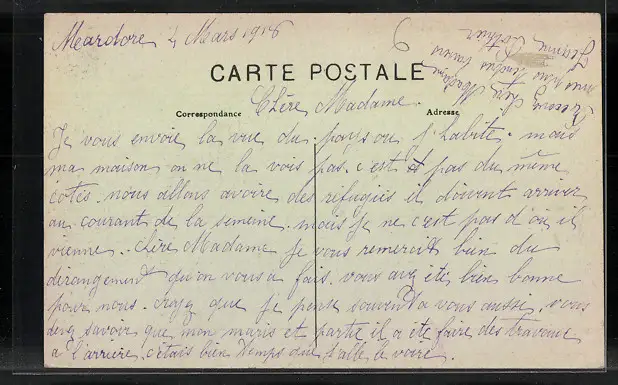 Méardore, 4 Mars 1916
CARTE POSTALE
Correspondance
Adresse
Chère Madame.
Je vous envoie la vue du pays ou l'habite. mais
ma maison on ne la vois pas. c'est pas du même
cotés. nous allons avoire des réfugiés il doivent arriver
au courant de la semeine. mais je ne c'est pas d'ou il
vienne. Chère Madame je vous remercit bien du
dérangement qu'on vous a fais. vous avez etés bien bonne
pour nous. croyez que je pense souvent a vous aussi. vous
devez savoir que mon maris et partie il a été faire des travaux
a l'arriere. c'etais bien temps que j'alle le voire.
chère Madame
mes plus tendres
Jeanne